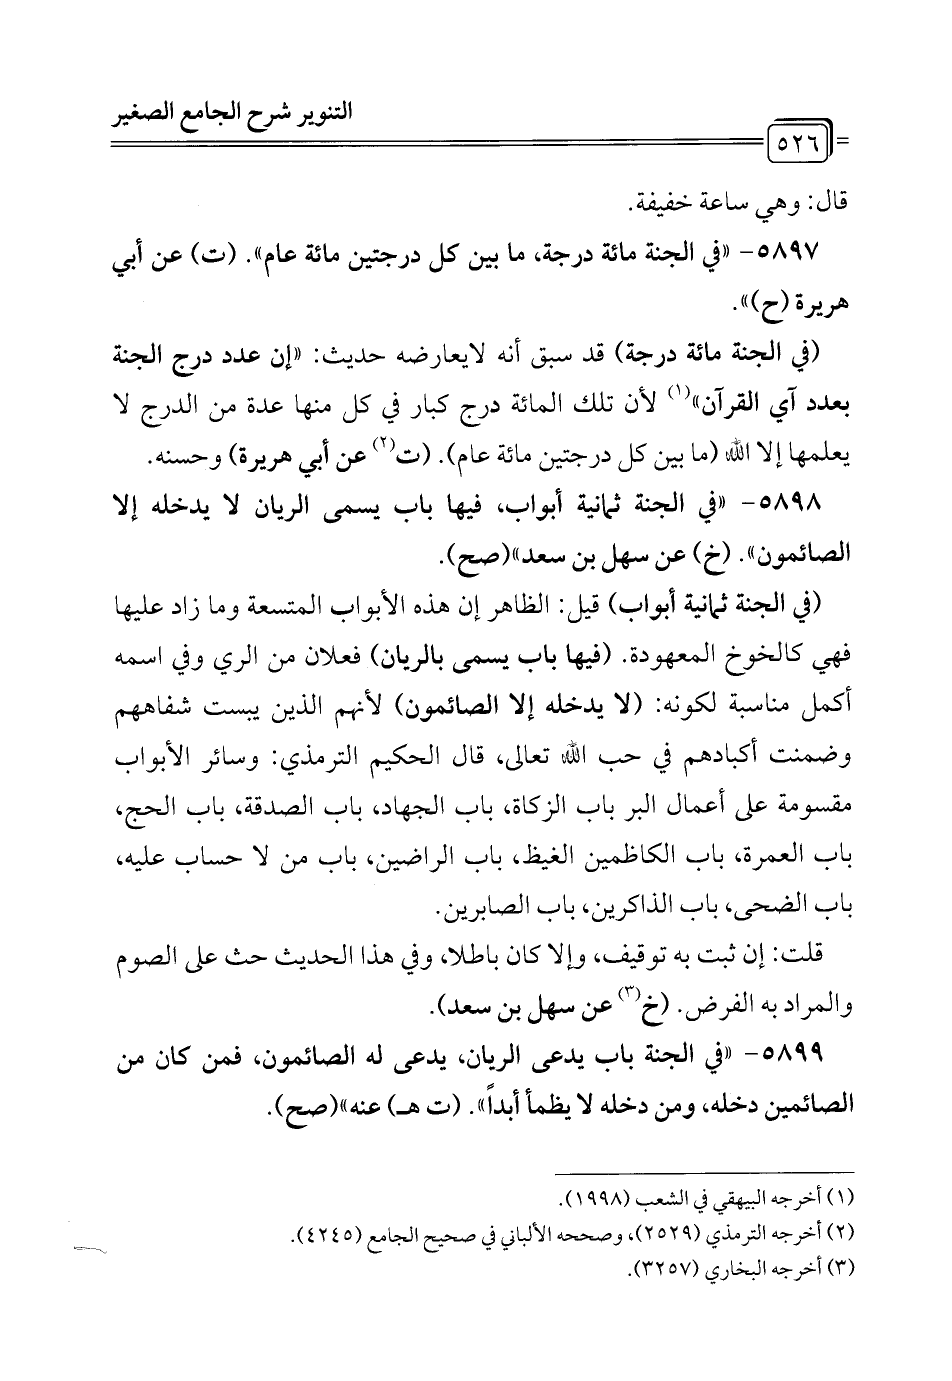 التنوير شرح الجامع الصغير
٥٢٦
قال: وهي ساعة خفيفة.
٥٨٩٧- «في الجنة مائة درجة، ما بين كل درجتين مائة عام». (ت) عن أبي
هريرة (ح)».
(في الجنة مائة درجة) قد سبق أنه لايعارضه حديث: «إن عدد درج الجنة
بعدد آي القرآن»(١) لأن تلك المائة درج كبار في كل منها عدة من الدرج لا
يعلمها إلا الله (ما بين كل درجتين مائة عام). (ت(٢) عن أبي هريرة) وحسنه.
٥٨٩٨- «في الجنة ثمانية أبواب، فيها باب يسمى الريان لا يدخله إلا
الصائمون». (خ) عن سهل بن سعد»(صح).
(في الجنة ثمانية أبواب) قيل: الظاهر إن هذه الأبواب المتسعة وما زاد عليها
فهي كالخوخ المعهودة. (فيها باب يسمى بالريان) فعلان من الري وفي اسمه
أكمل مناسبة لكونه: (لا يدخله إلا الصائمون) لأنهم الذين يبست شفاههم
وضمئت أكبادهم في حب الله تعالى، قال الحكيم الترمذي: وسائر الأبواب
مقسومة على أعمال البر باب الزكاة، باب الجهاد، باب الصدقة، باب الحج،
باب العمرة، باب الكاظمين الغيظ، باب الراضين، باب من لا حساب عليه،
باب الضحى، باب الذاكرين، باب الصابرين.
قلت: إن ثبت به توقيف، وإلا كان باطلا، وفي هذا الحديث حث على الصوم
والمراد به الفرض. (خ(٣) عن سهل بن سعد).
٥٨٩٩- «في الجنة باب يدعى الريان، يدعى له الصائمون، فمن كان من
الصائمين دخله، ومن دخله لا يظمأ أبداً». (ت هـ) عنه»(صح).
(١) أخرجه البيهقي في الشعب (١٩٩٨).
(٢) أخرجه الترمذي (٢٥٢٩)، وصححه الألباني في صحيح الجامع (٤٢٤٥).
(٣) أخرجه البخاري (٣٢٥٧).